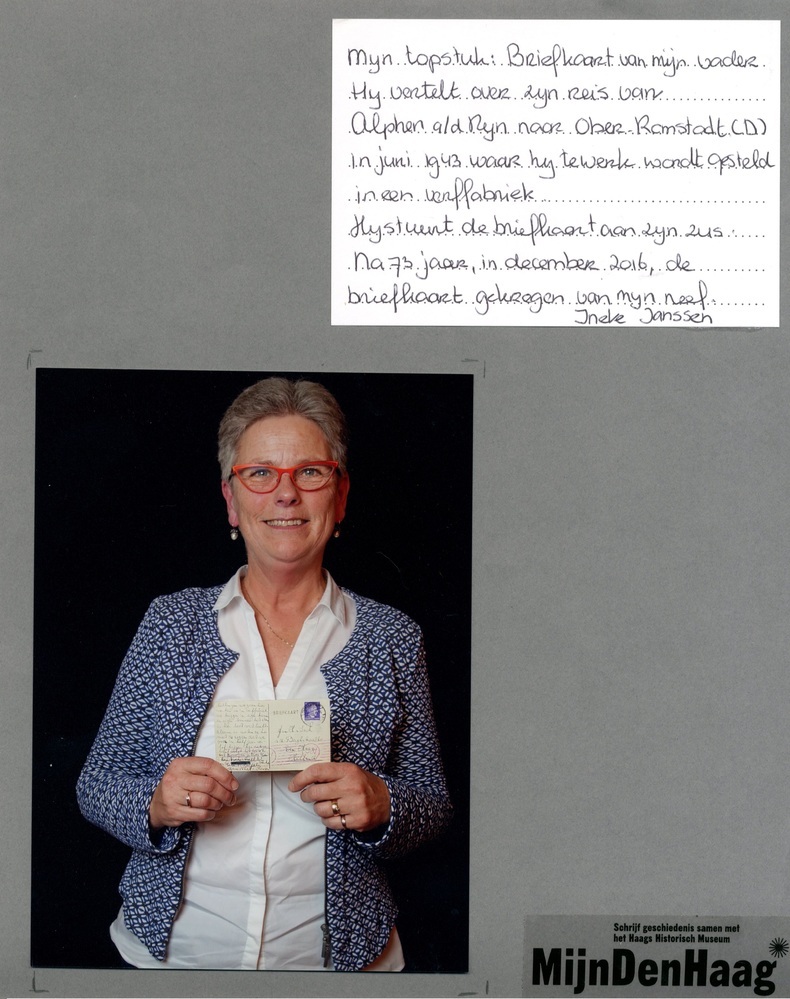 Mijn topstuk: Briefkaart van mijn vader.
Hij vertelt over zijn reis van
Alphen a/d Rijn naar Ober-Ramstadt (D)
in juni 1943 waar hij te werk wordt gesteld
in een verffabriek
Hij stuurt de briefkaart aan zijn zus.
Na 73 jaar, in december 2016, de
briefkaart gekregen van mijn neef.
Ineke Janssen
Schrijf geschiedenis samen met
het Haags Historisch Museum
MijnDenHaag